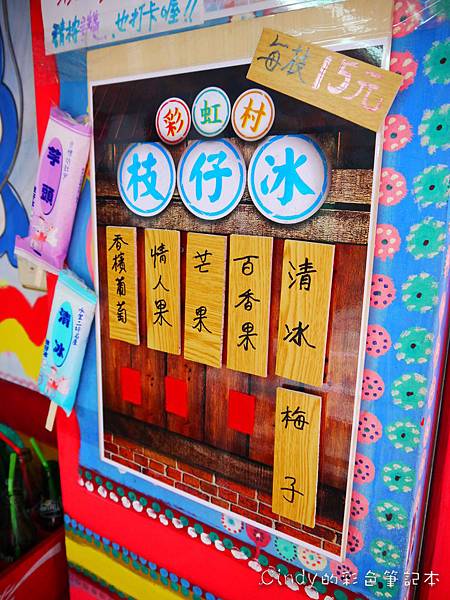 也打卡喔!!
每枝15元
彩虹村
枝仔冰
香檳葡萄
情人果
芒果
百香果
清冰
梅子
芋頭
清冰
Cindy的彩色筆記本